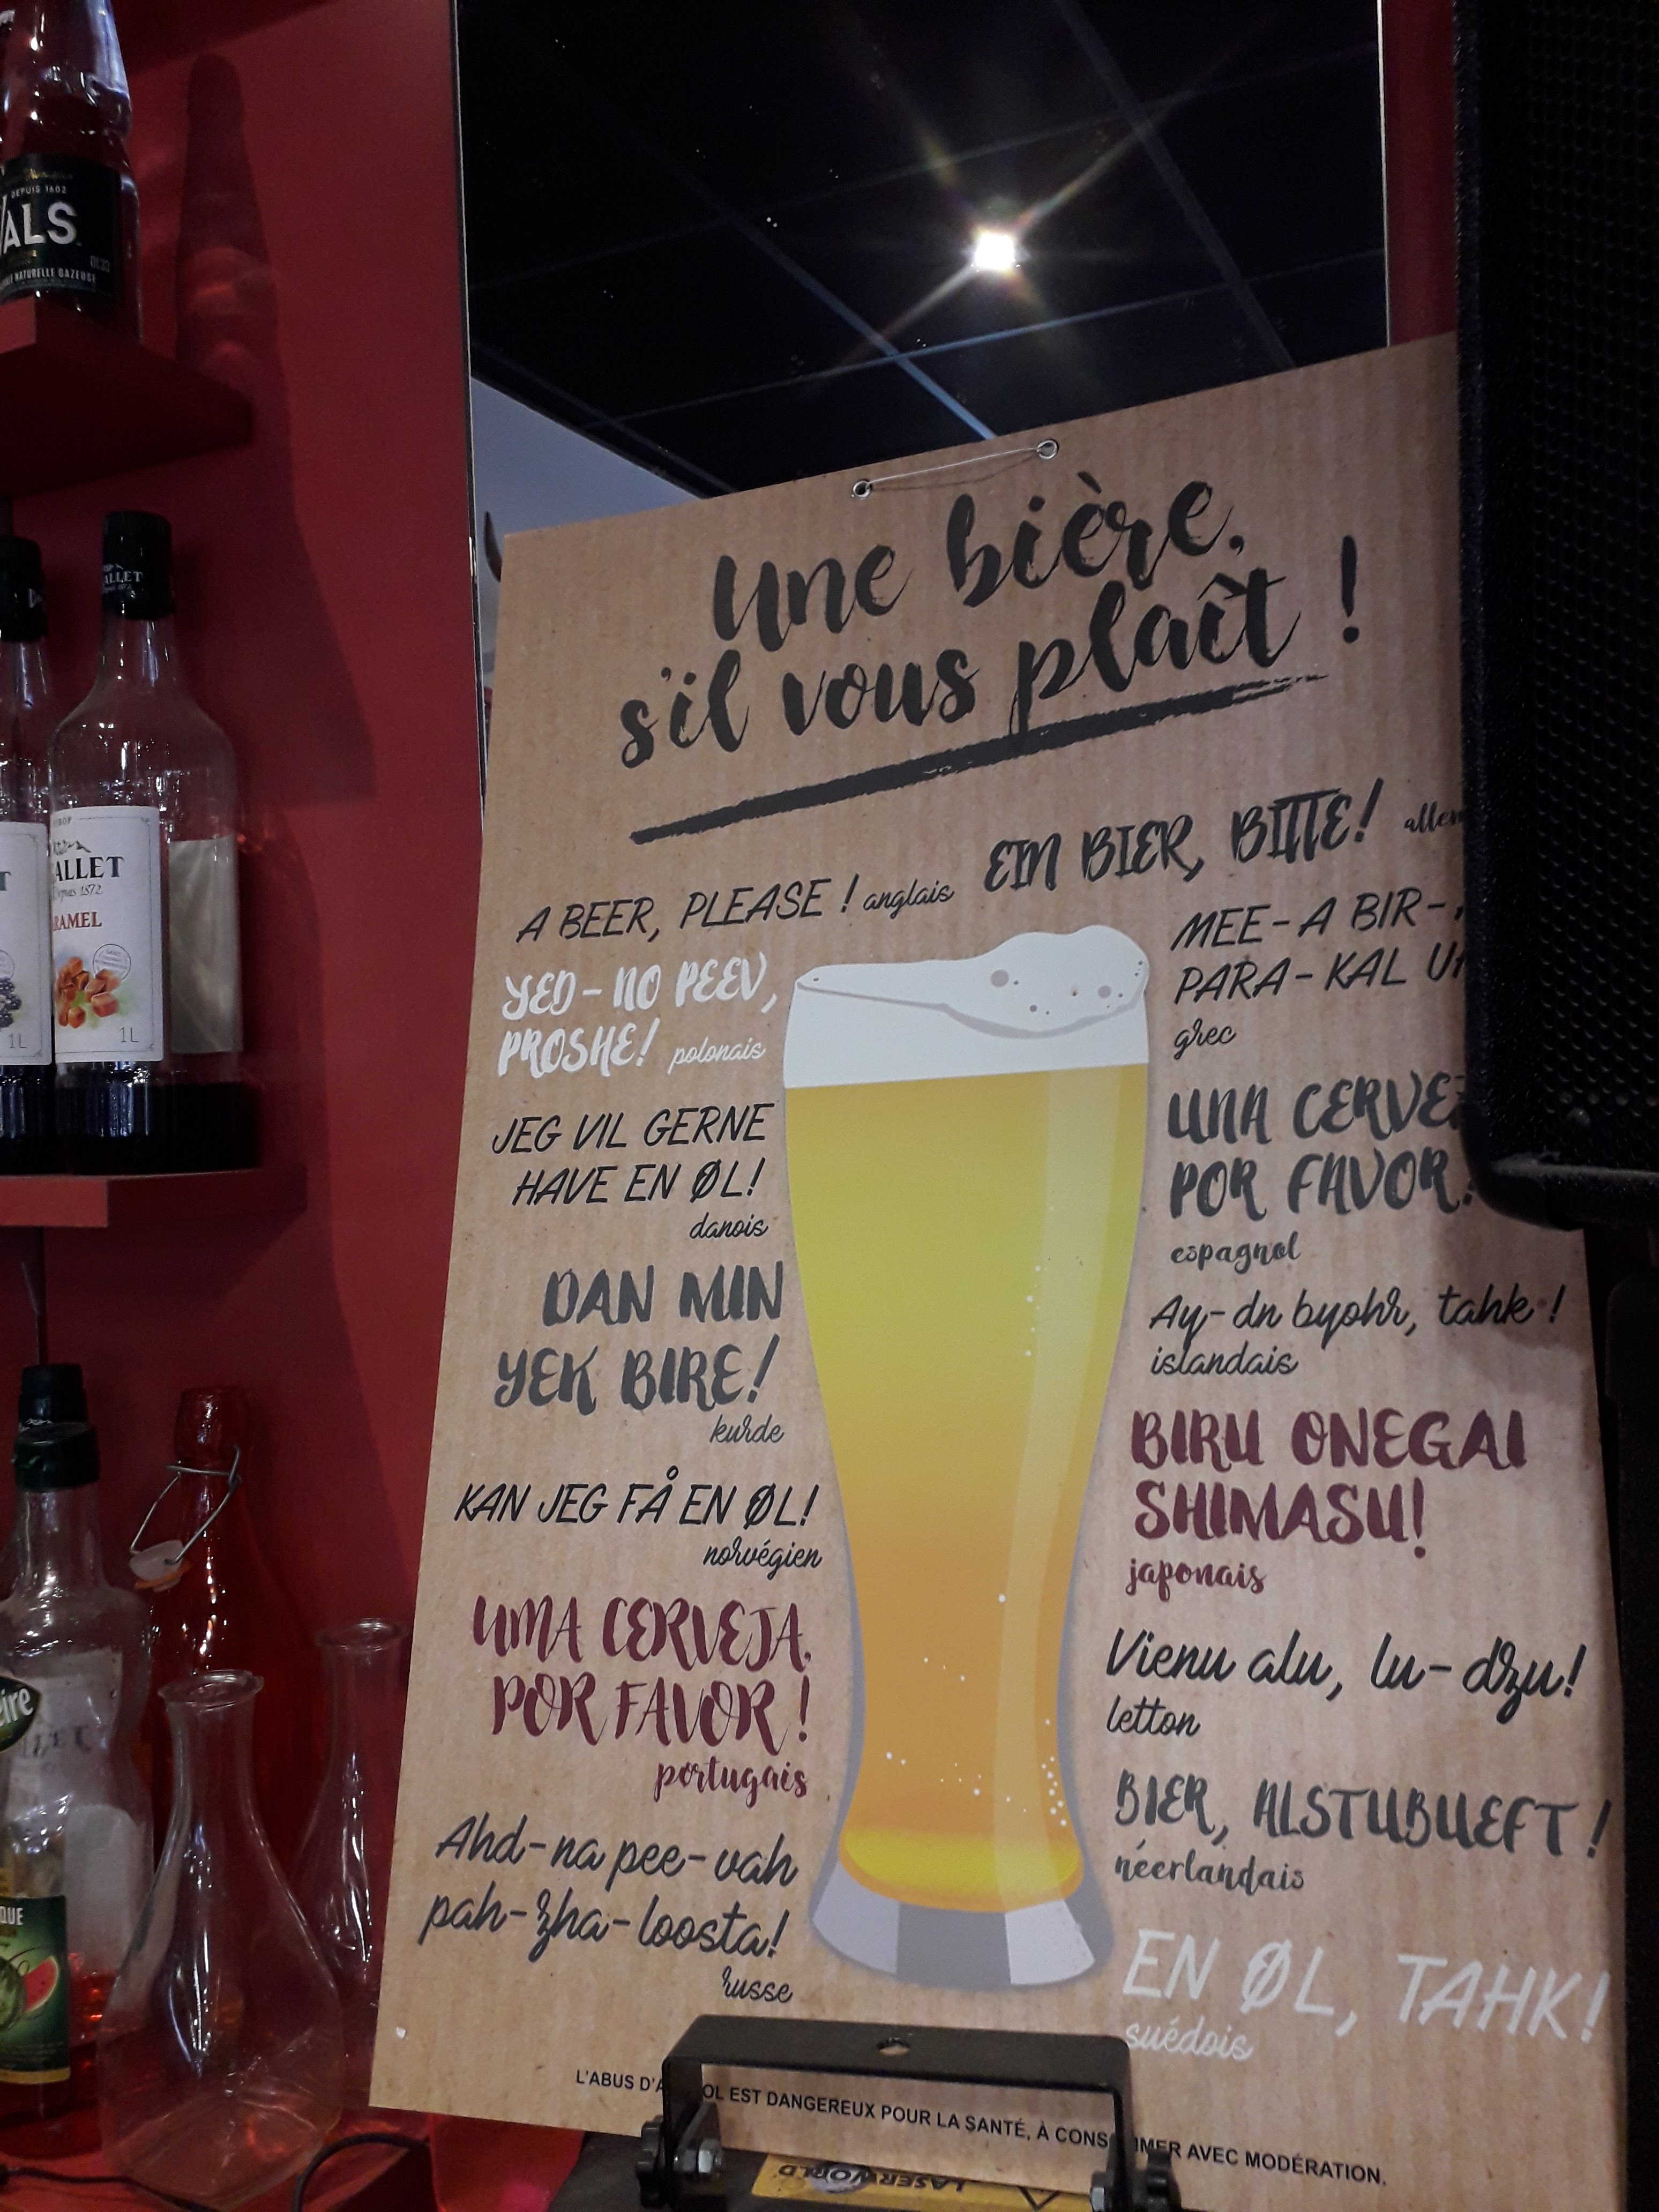 DEPUIS 1602
VALS
NATURELLE GAZEUSE
ALLET
ALLET
Depuis 1872
RAMEL
1L
1L
Une bière,
s'il vous plaît !
EIN BIER, BITTE!
A BEER, PLEASE ! anglais
MEE-A BIR-
PARA-KAL
grec
YED-NO PEEV,
PROSHE! polonais
JEG VIL GERNE
HAVE EN ØL!
danois
DAN MIN
YEK BIRE!
kurde
KAN JEG FÅ EN ØL!
norvégien
UMA CERVEJA,
POR FAVOR !
portugais
Ahd-na pee-vah
pah-zha-loosta!
russe
UNA CERVEZ
POR FAVOR!
espagnol
Ay-dn byohr, tahk !
islandais
BIRU ONEGAI
SHIMASU!
japonais
Vienu alu, lu-dzu!
letton
BIER, ALSTUBUEFT !
néerlandais
EN ØL, TAHK!
suédois
L'ABUS D'A OL EST DANGEREUX POUR LA SANTÉ, À CONS MMER AVEC MODÉRATION.
LASERWORLD